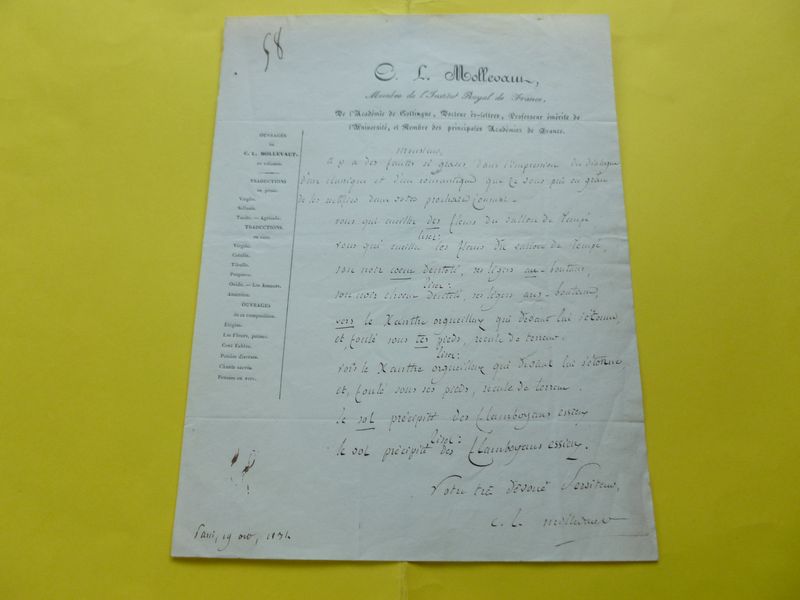 58
C. L. Mollevaut,
Membre de l'Institut Royal de France,
De l'Académie de Gottingue, Docteur ès-lettres, Professeur émérite de
l'Université, et Membre des principales Académies de France.
OUVRAGES
DE
C. L. MOLLEVAUT
TRADUCTIONS
en prose.
Virgile.
Salluste.
Tacite. — Agricola.
TRADUCTIONS
en vers.
Virgile.
Catulle.
Tibulle.
Properce.
Ovide. — Les Amours.
Anacréon.
OUVRAGES
de sa composition.
Élégies.
Les Fleurs, poème.
Cent Fables.
Poésies diverses.
Chants sacrés.
Pensées en vers.
Monsieur,
il y a des fautes si graves dans l'impression du dialogue
d'un classique et d'un romantique que je vous prie en grâce
de les rectifier dans votre prochain
vous qui cueille des fleurs du vallon de Tempé
lisez:
vous qui cueille les fleurs du vallon de Tempé,
son noir coeur dentelé, ses légers
lisez:
son noir dentelé, ses légers
vers le Xanthe orgueilleux qui devant lui s'étonne,
et, foulé sous tes pieds, recule de terreur.
lisez:
vois le Xanthe orgueilleux qui devant lui s'étonne
et, foulé sous ses pieds, recule de terreur.
le sol précipité des flamboyans essieux
lisez:
le vol précipité des flamboyans essieux.
Votre très dévoué serviteur,
C. L. Mollevaut
Paris, 19